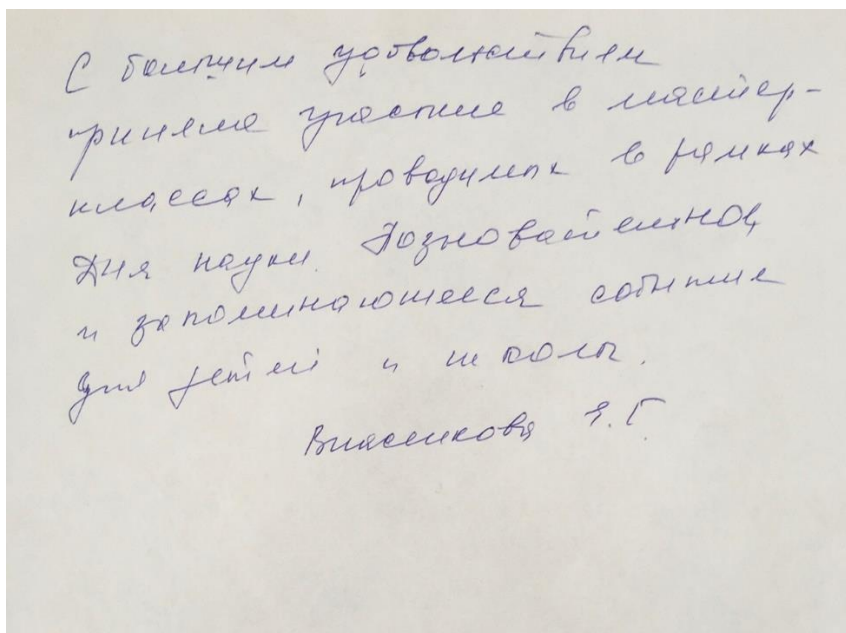 С большим удовольствием
приняла участие в мастер-
классах, проводимых в рамках
Дня науки. Познавательное
и запоминающееся событие
для детей и школы.
Я.Г.